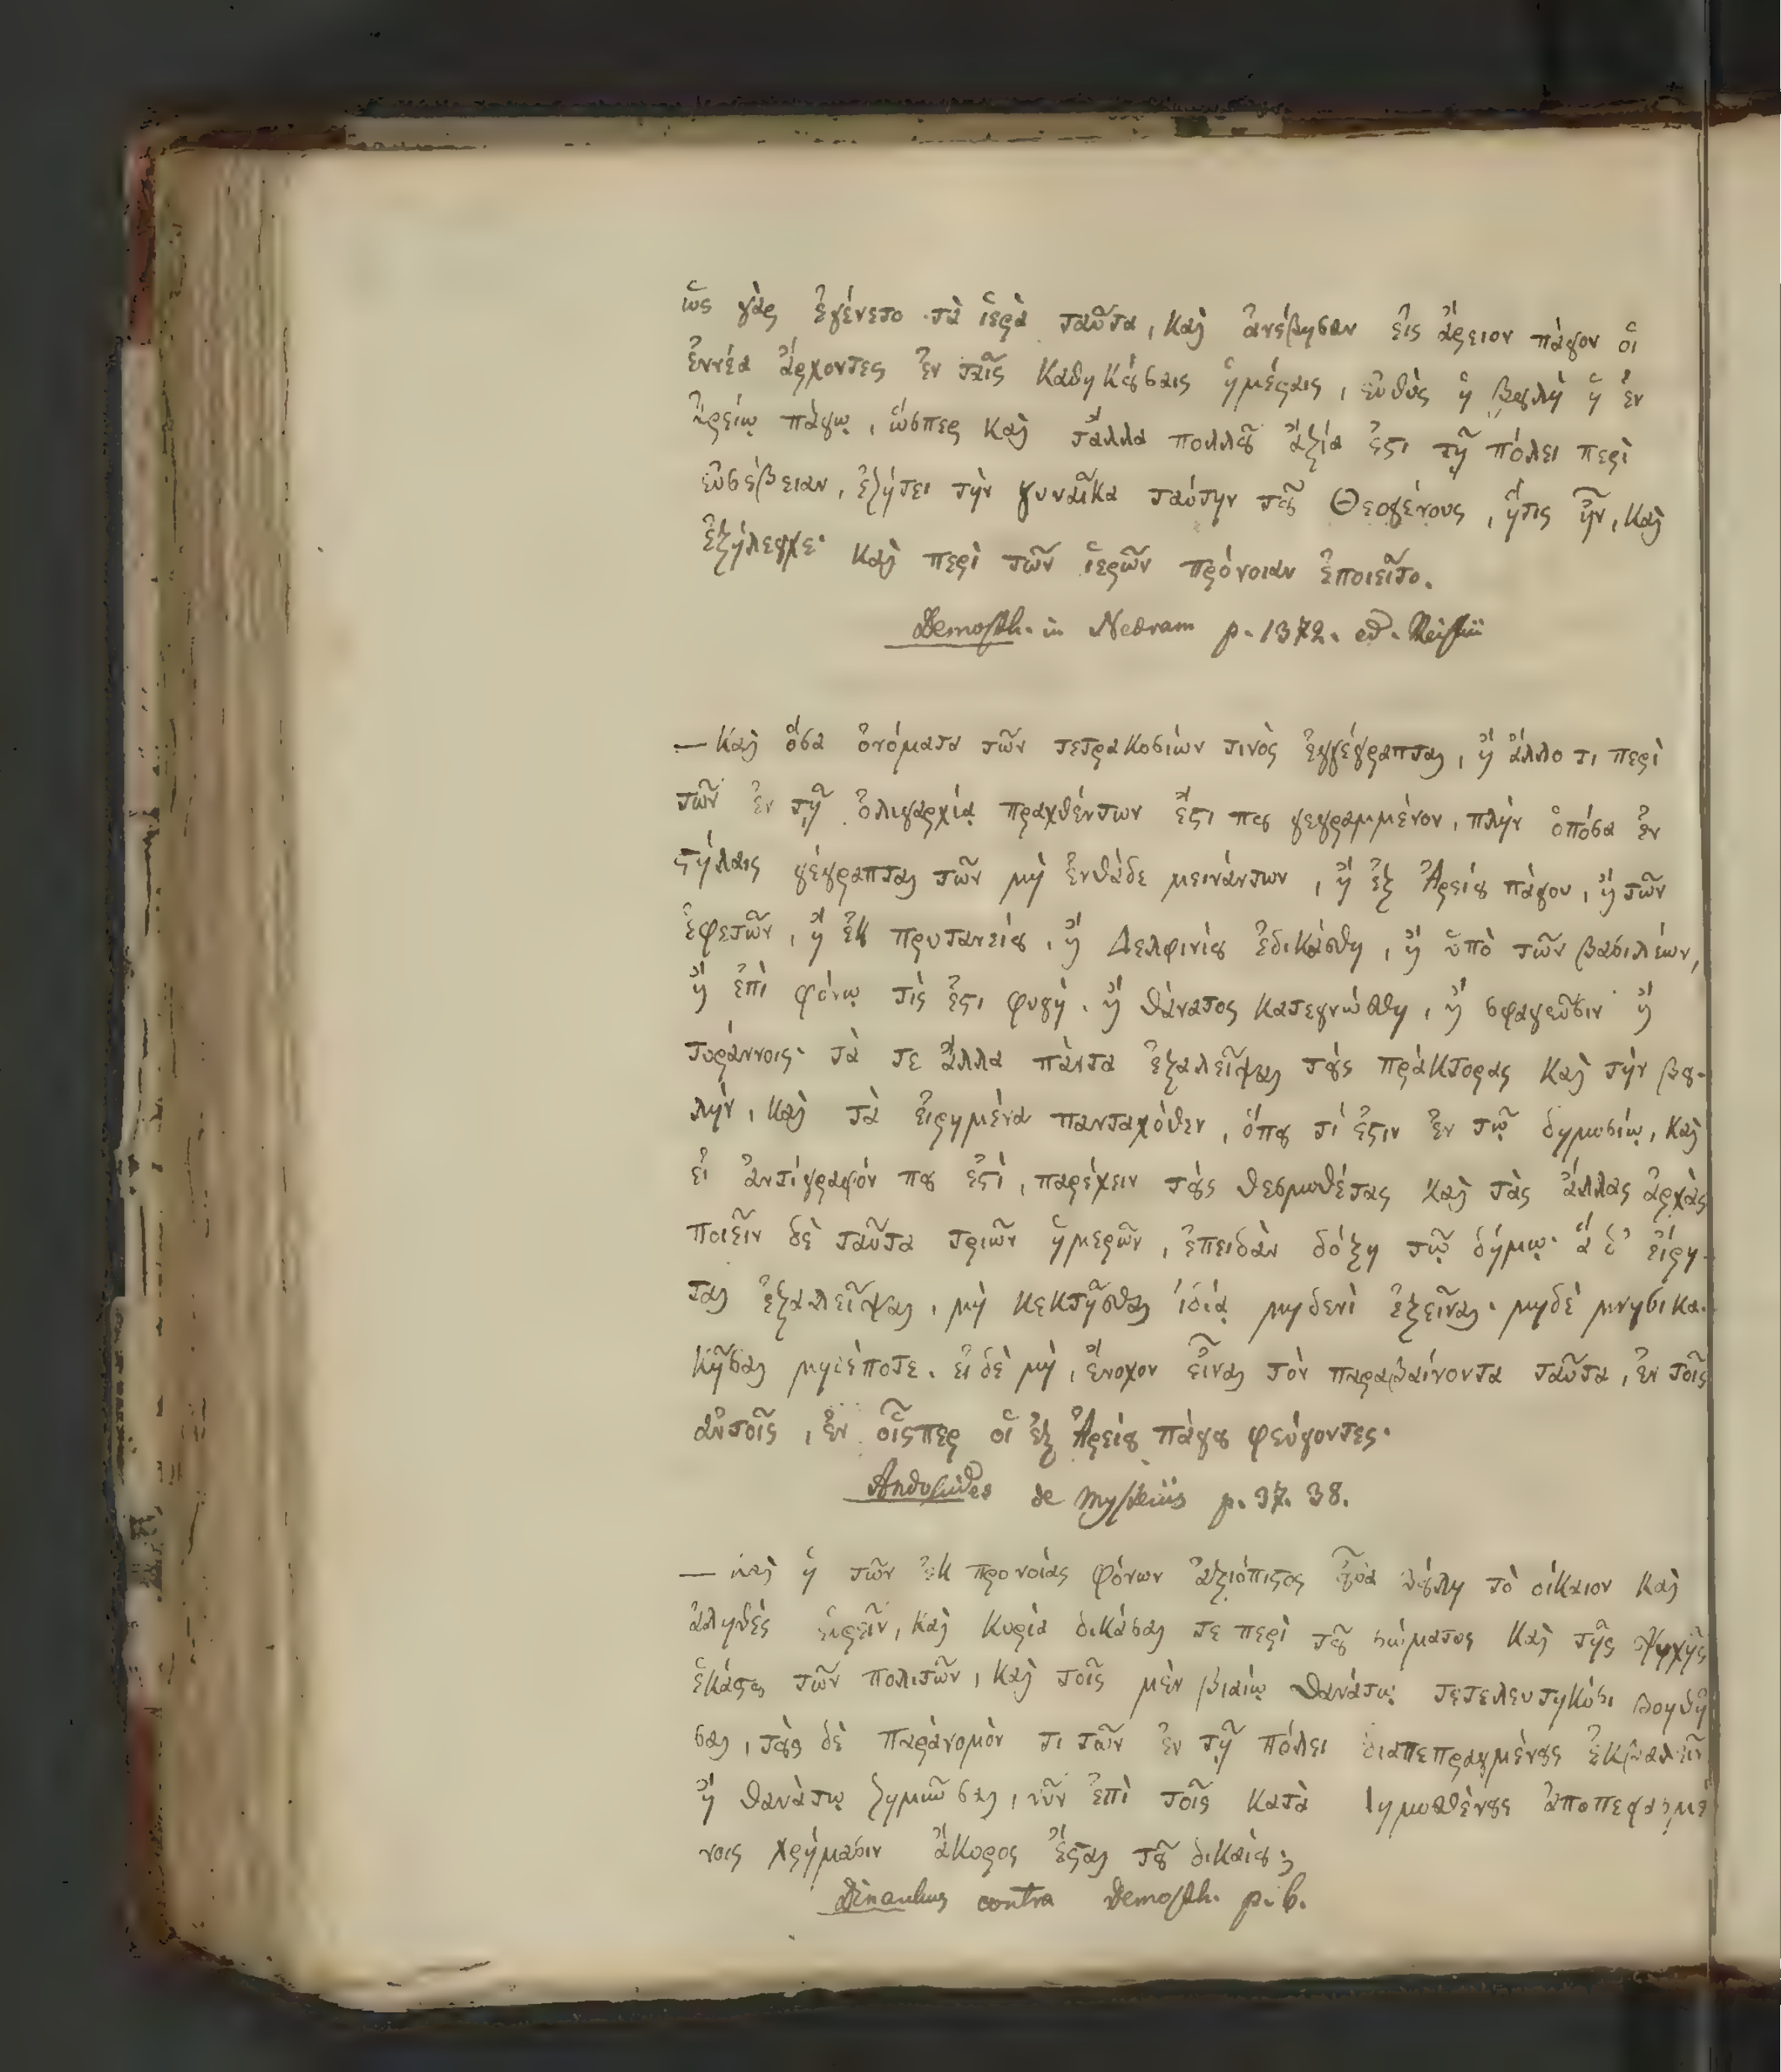 ὡς γὰρ ἐγένετο τὰ ἱερὰ ταῦτα, καὶ ἀνέβησαν εἰς ἄρειον πάγον οἱ
ἐννέα ἄρχοντες ἐν ταῖς καθηκούσαις ἡμέραις, εὐθὺς ἡ βουλὴ ἡ ἐν
Ἀρείῳ πάγῳ, ὥσπερ καὶ τἄλλα πολλοῦ ἀξία ἐστι τῇ πόλει περὶ
εὐσέβειαν, ἐζήτει τὴν γυναῖκα ταύτην τοῦ Θεογένους, ἥτις ἦν, καὶ
ἐξήλεγχε· καὶ περὶ τῶν ἱερῶν πρόνοιαν ἐποιεῖτο.
Demosth. in Neæram p. 1372. ed. Reiskii
— καὶ ὅσα ὀνόματα τῶν τετρακοσίων τινὸς ἐγγέγραπται, ἢ ἄλλο τι περὶ
τῶν ἐν τῇ ὀλιγαρχίᾳ πραχθέντων ἔστι που γεγραμμένον, πλὴν ὁπόσα ἐν
στήλαις γέγραπται τῶν μὴ ἐνθάδε μεινάντων, ἢ ἐξ Ἀρείου πάγου, ἢ τῶν
ἐφετῶν, ἢ ἐκ πρυτανείου, ἢ Δελφινίου ἐδικάσθη, ἢ ὑπὸ τῶν βασιλέων,
ἢ ἐπὶ φόνῳ τίς ἐστι φυγὴ, ἢ θάνατος κατεγνώσθη, ἢ σφαγεῦσιν ἢ
τυράννοις· τὰ τε ἄλλα πάντα ἐξαλεῖψαι τοὺς πράκτορας καὶ τὴν βου-
λὴν, καὶ τὰ εἰρημένα πανταχόθεν, ὅπου τί ἐστιν ἐν τῷ δημοσίῳ, καὶ
εἰ ἀντίγραφόν που ἐστὶ, παρέχειν τοὺς θεσμοθέτας καὶ τὰς ἄλλας ἀρχὰς
ποιεῖν δὲ ταῦτα τριῶν ἡμερῶν, ἐπειδὰν δόξῃ τῷ δήμῳ· ἃ δ' εἴρη-
ται ἐξαλεῖψαι, μὴ κεκτῆσθαι ἰδίᾳ μηδενὶ ἐξεῖναι· μηδὲ μνησικα-
κῆσαι μηδέποτε. εἰ δὲ μὴ, ἔνοχον εἶναι τὸν παραβαίνοντα ταῦτα, ἐν τοῖς
αὐτοῖς, ἐν οἷσπερ οἱ ἐξ Ἀρείου πάγου φεύγοντες.
Andocides de Mysteriis p. 37. 38.
— καὶ ἡ τῶν ἐκ προνοίας φόνων ἀξιόπιστος οὖσα βουλὴ τὸ δίκαιον καὶ
ἀληθὲς εὑρεῖν, καὶ κυρία δικάσαι τε περὶ τοῦ σώματος καὶ τῆς ψυχῆς
ἑκάστου τῶν πολιτῶν, καὶ τοῖς μὲν βιαίῳ θανάτῳ τετελευτηκόσι βοηθῆ
σαι, τοὺς δὲ παράνομόν τι τῶν ἐν τῇ πόλει διαπεπραγμένους ἐκβαλεῖν
ἢ θανάτῳ ζημιῶσαι, νῦν ἐπὶ τοῖς κατὰ Δημοσθένους ἀποπεφασμέ
νοις χρήμασιν ἄκυρος ἔσται τοῦ δικαίου;
Dinarchus contra Demosth. p. 6.